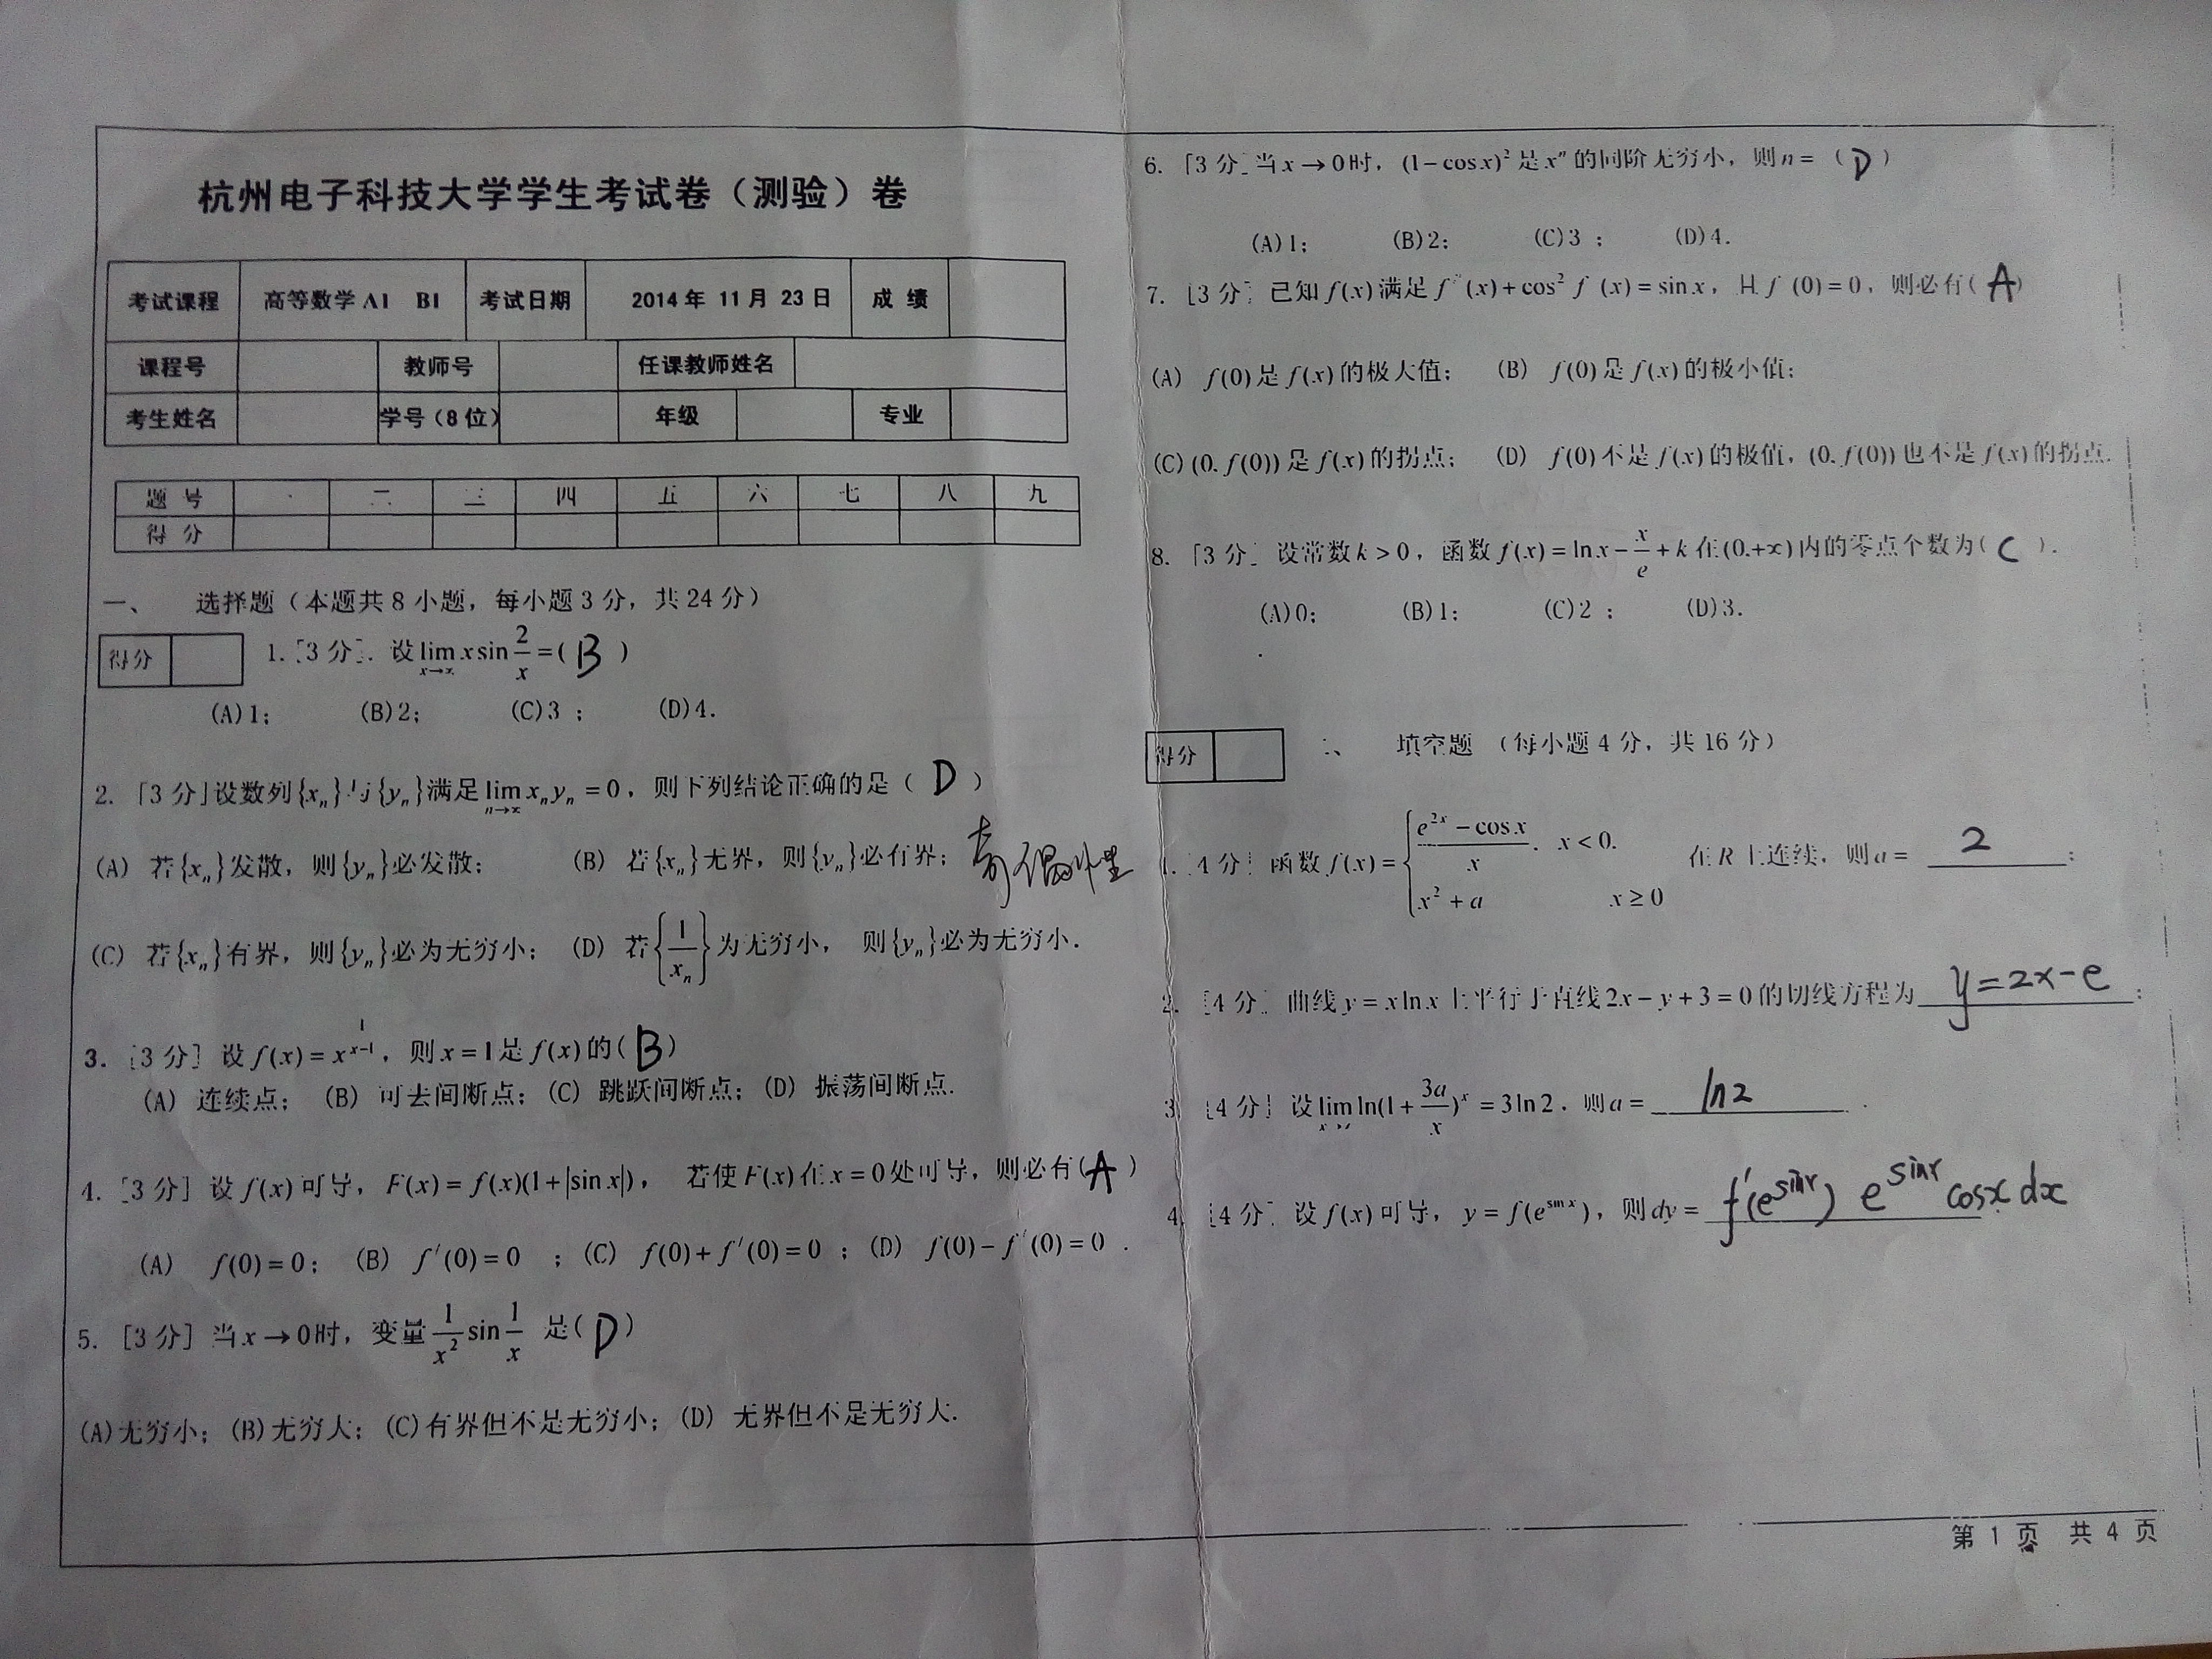 杭州电子科技大学学生考试卷（测验）卷
考试课程 高等数学 A1 B1 考试日期 2014 年 11 月 23 日 成 绩
课程号 教师号 任课教师姓名
考生姓名 学号（8 位） 年级 专业
题 号 二 三 四 五 六 七 八 九
得 分
一、 选择题（本题共 8 小题，每小题 3 分，共 24 分）
得分
1. [3 分]. 设 lim_{x→∞} x sin 2/x = ( B )
(A) 1; (B) 2; (C) 3 ; (D) 4.
2. [3 分] 设数列 {x_n} 与 {y_n} 满足 lim_{n→∞} x_n y_n = 0，则下列结论正确的是（ D ）
(A) 若 {x_n} 发散，则 {y_n} 必发散； (B) 若 {x_n} 无界，则 {y_n} 必有界； 奇偶
(C) 若 {x_n} 有界，则 {y_n} 必为无穷小； (D) 若 {1/x_n} 为无穷小， 则 {y_n} 必为无穷小.
3. [3 分] 设 f(x) = x^{1/(x-1)}，则 x = 1 是 f(x) 的( B )
(A) 连续点； (B) 可去间断点；(C) 跳跃间断点；(D) 振荡间断点.
4. [3 分] 设 f(x) 可导，F(x) = f(x)(1+|sin x|)， 若使 F(x) 在 x = 0 处可导，则必有( A )
(A) f(0) = 0； (B) f′(0) = 0 ；(C) f(0) + f′(0) = 0 ；(D) f(0) − f′(0) = 0 .
5. [3 分] 当 x → 0 时，变量 1/x² sin 1/x 是( D )
(A) 无穷小；(B) 无穷大；(C) 有界但不是无穷小；(D) 无界但不是无穷大.
6. [3 分] 当 x → 0 时，(1 − cos x)² 是 x^n 的同阶无穷小，则 n = （ D ）
(A) 1; (B) 2; (C) 3 ; (D) 4.
7. [3 分] 已知 f(x) 满足 f″(x) + cos² f′(x) = sin x，且 f′(0) = 0，则必有( A )
(A) f(0) 是 f(x) 的极大值； (B) f(0) 是 f(x) 的极小值；
(C) (0, f(0)) 是 f(x) 的拐点； (D) f(0) 不是 f(x) 的极值，(0, f(0)) 也不是 f(x) 的拐点.
8. [3 分] 设常数 k > 0，函数 f(x) = ln x − x/e + k 在 (0,+∞) 内的零点个数为( C ).
(A) 0; (B) 1; (C) 2 ; (D) 3.
得分
二、 填空题 （每小题 4 分，共 16 分）
1. [4 分] 函数 f(x) = { (e^{2x} − cos x)/x, x < 0. x² + a x ≥ 0 在 R 上连续，则 a = 2 ；
2. [4 分] 曲线 y = x ln x 上平行于直线 2x − y + 3 = 0 的切线方程为 y=2x-e ；
3. [4 分] 设 lim_{x→∞} ln(1 + 3a/x)^x = 3 ln 2 . 则 a = ln2 .
4. [4 分] 设 f(x) 可导，y = f(e^{sin x})，则 dy = f′(e^{sinx}) e^{sinx} cosx dx
第 1 页 共 4 页